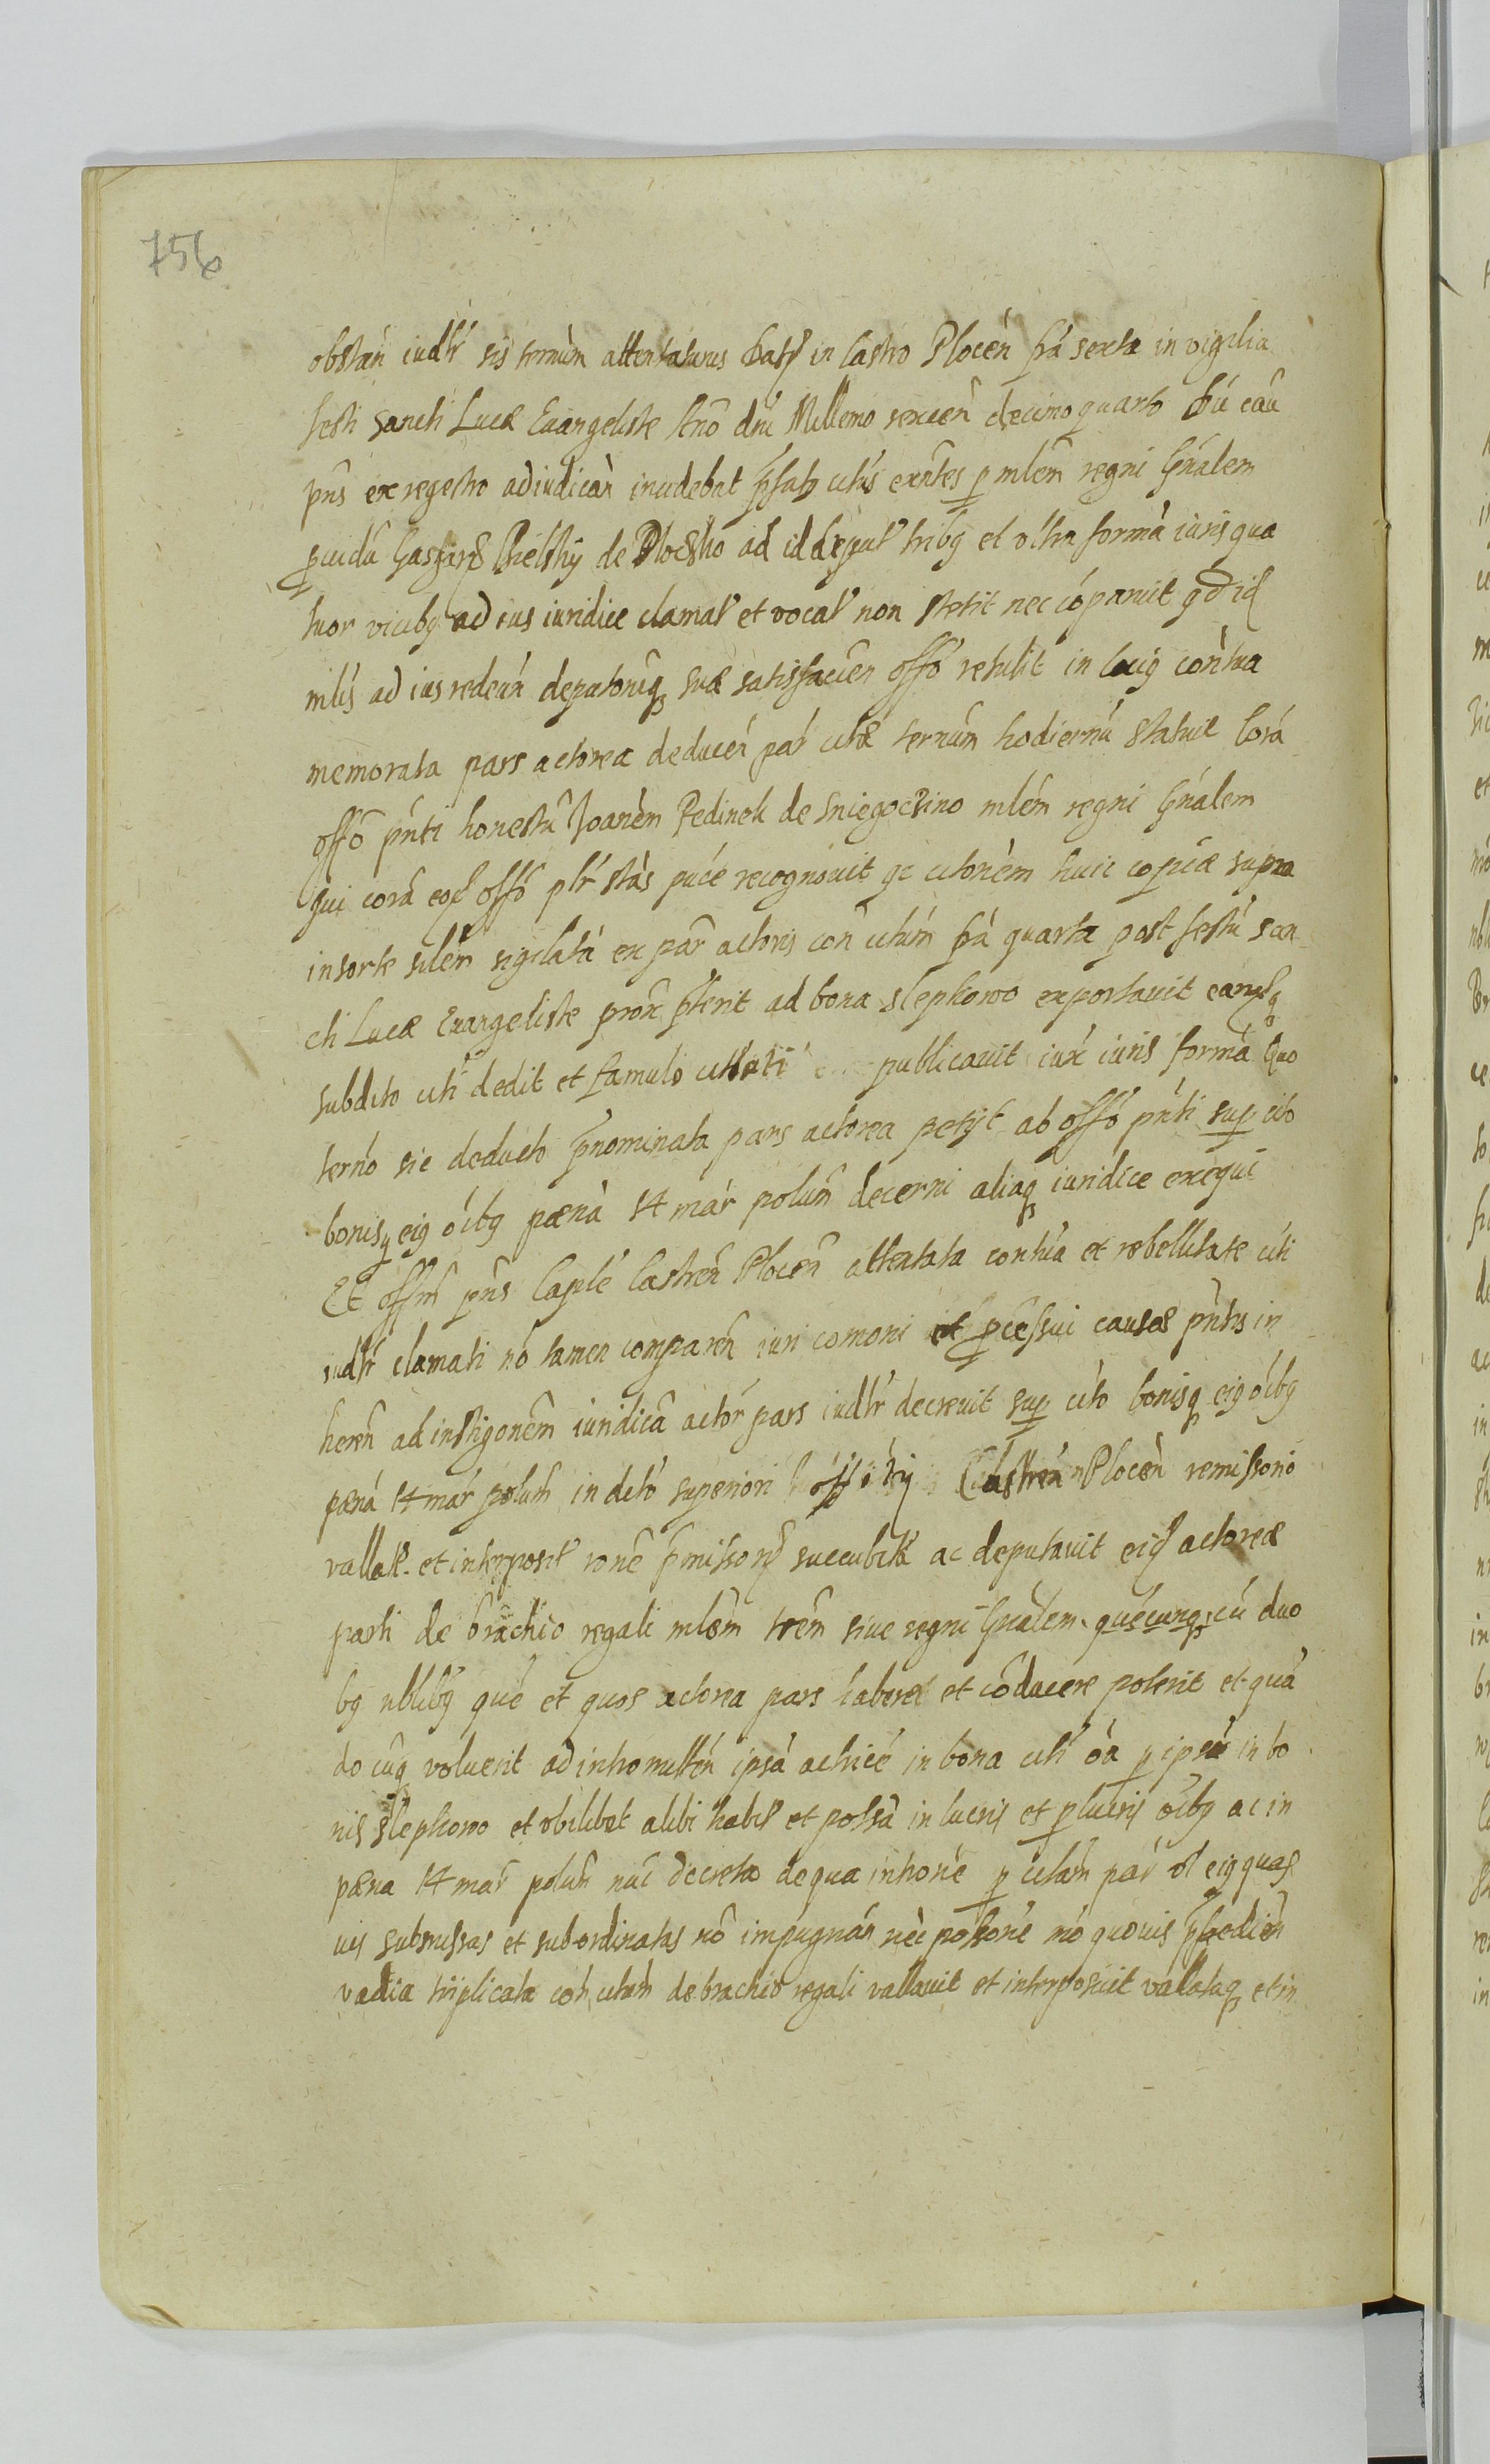 756
obstań iudłr sis ternúm attentaturus Daty in Castro Plocén fra sexta in vigilia
festi Sancti Lucæ Euangeliste Añō dńi Millemo sexcen̂ decimo quarto Dú caû
pn̂s ex regestro adiudicań incidebat citús exn̂tes p mlêm regni Gńalem
puidû Gasparê Bielsky de Plocsko ad id deput tribg et vltra formà iuris qua
tuor vicibg ad ius iuridice clamat et vocat non stetit nec cóparuit
mlís ad ius redeún suæ satisfacien offo retulit in contua
memorata pars actorea deducén par citæ ternúm hodiernú statuit Corá
offō pn̂ti honestû Joanêm Pedinek de Sniegoczino mlém regni Gńalem
qui corâ offō plr stàs recognouit citonèm huic copiæ supra
insorte silêm sigilatá ex par actoris con citúm frà quarta post festú san
cti Lucæ Euangeliste prox pterit ad bona Slepkowo exportauit
subdito citi dedit et famulo citati publicauit iux iuris formâ Quo
terńo sic deducto pnominata pars actorea petÿt ab offō pn̂ti sup cito
bonisq eig óibg pænà 14 már polún decerni aliaq iuridice exequi
Et offm pn̂s Caplé Castren̂ Plocen̂ attentata contúa et rebellitate citi
iudlr clamati nō tamen comparen̂ iuri comoni et pcessui causæ pn̂tis in
heren̂ ad instigonêm iuridicâ actór pars iudlr decreuit sup cito bonisq eig óibg
pænâ 14 már polún in dcto superiori offitÿ Castren Plocèn remissorio
vallat et interposit ronê pmissorũ succubitæ ac deputauit eid actoreæ
parti de brachio regali mlêm trêm siue regni Gńalem quecunq cū duo
bg nblibg quê et quos actorea pars haberet et côducere poterit et quâ
do cûq voluerit ad intromittén ipsà actricé in bona citi óa p ipsú in bo
nis Slepkowo et vbilibet alibi habit et possâ in lucris et plucris óibg ac in
pæna 14 már polún nûc decreta de qua intronê p citúm pár vl eig quas
uis submissas et subordinatas nô impugnán nèc possonê mo quouis
vadia triplicata con citúm de brachio regali vallauit et interposuit vallataq et in